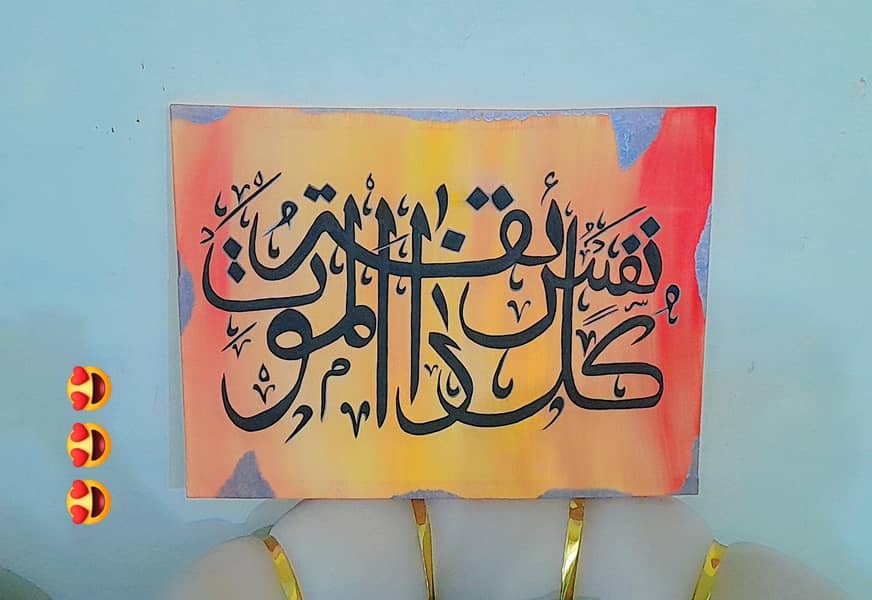 كُلُّ نَفْسٍ ذَائِقَةُ الْمَوْتِ